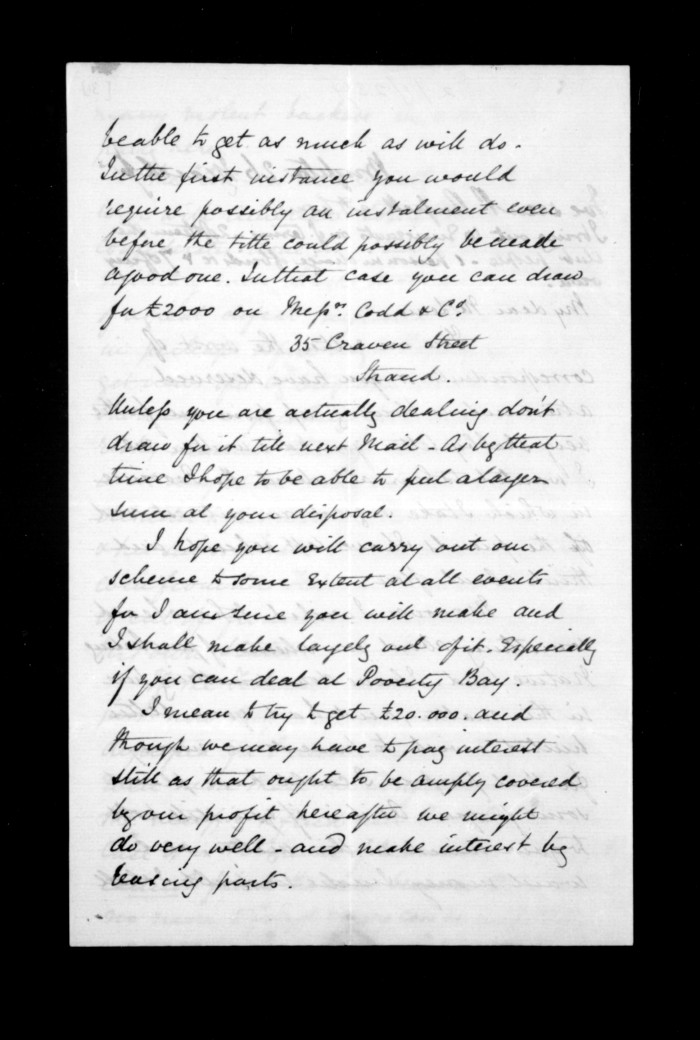 be able to get as much as will do.
In the first instance you would
require possibly an instalment even
before the title could possibly be made
a good one. In that case you can draw
for £2000 on Messrs. Codd & Co.
35 Craven Street
Strand.
Unless you are actually dealing don't
draw for it till next Mail - As by that
time I hope to be able to put a larger
sum at your disposal.
I hope you will carry out our
scheme to some extent at all events
for I am sure you will make and
I shall make largely out of it. Especially
if you can deal at Poverty Bay.
I mean to try to get £20.000. and
though we may have to pay interest
still as that ought to be amply covered
by our profit hereafter we might
do very well - and make interest by
leasing parts.